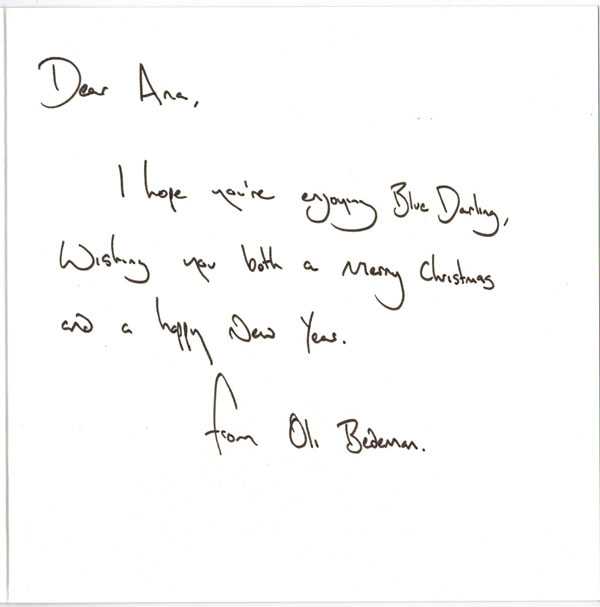 Dear Ana,
I hope you're enjoying Blue Darling,
Wishing you both a Merry Christmas
and a happy New Year.
from Oli Bedeman.